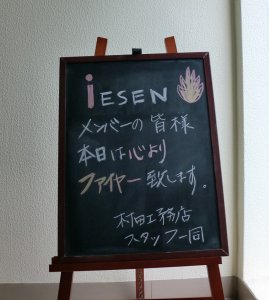 iESEN
メンバーの皆様
本日は心より
ファイヤー致します。
村田工務店
スタッフ一同